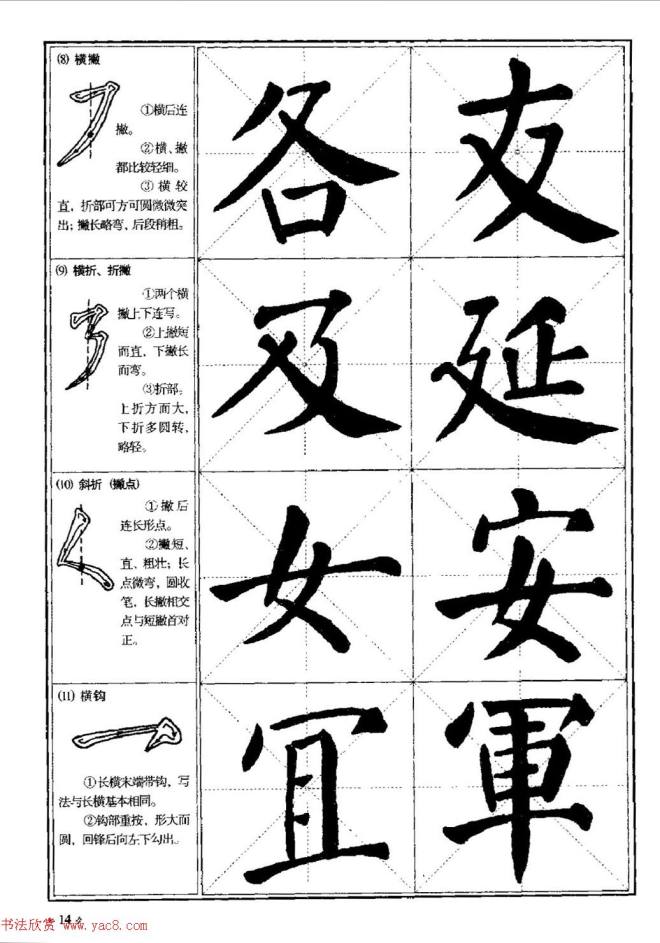 (8) 横撇
①横后连
撇。
②横、撇
都比较轻细。
③横较
直，折部可方可圆微微突
出；撇长略弯，后段稍粗。
各 友
(9) 横折、折撇
①两个横
撇上下连写。
②上撇短
而直，下撇长
而弯。
③折部。
上折方而大，
下折多圆转，
略轻。
及 延
(10) 斜折（撇点）
①撇后
连长形点。
②撇短、
直、粗壮；长
点微弯，回收
笔，长撇相交
点与短撇首对
正。
女 安
(11) 横钩
①长横末端带钩，写
法与长横基本相同。
②钩部重按，形大而
圆，回锋后向左下勾出。
冝 軍
14
书法欣赏 www.yac8.com